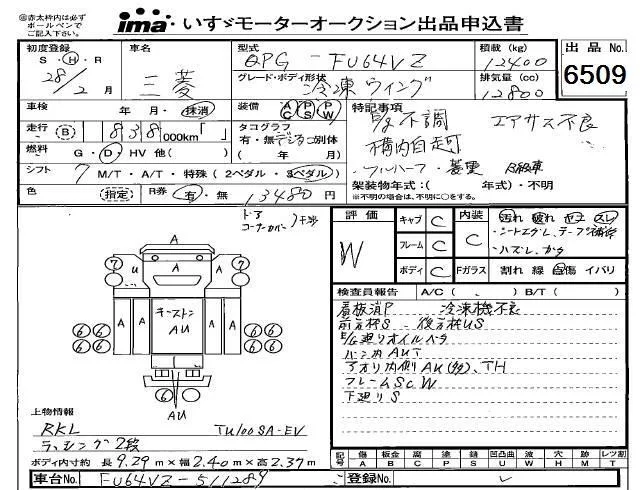 ㊟赤太枠内は必ず
ボールペンで
ご記入下さい。
ima いすゞモーターオークション出品申込書
初度登録 車名 型式 積載 (kg) 出品 No.
S・H・R 28/2 月 三菱 QPG-FU64VZ 12400 6509
グレード・ボディ形状 排気量 (cc)
冷凍ウィング 12800
車検 年 月・抹消 装備 AC PS PW 特記事項
E/g不調 エアサス不良
走行 (B) 838,000km「 」 タコグラフ 有・無 デジタコ別体
構内自走可
燃料 G・D・HV 他( ) ( 年 月)
シフト 7 M/T・A/T・特殊(2ペダル・3ペダル)
フルハーフ・菱重
架装物年式:( 年式)・不明
色 (指定) R券 有・無 13480円
※不明の場合は、不明に○をする。
ドア
コーナーカバー 干渉
評価 W
キャブ C 内装 C 汚れ 破れ コゲ スレ
・シートエグレ、テープ補修
フレーム C ・ハズレ、カケ
ボディ C Fガラス 割れ 線 白傷 イバリ
検査員報告 A/C( 、 ) B/T( )
看板消P 冷凍機不良
前方枠S 後方枠US
E/g廻りオイルベタ
バン内AUT
アオリ内側AU(多)、TH
フレームSC W
下廻りS
A
7 U A 7
A A キーストン AU A A
6 6 6 6
6 6 6 6
6 6
AU
上物情報
RKL TU100SA-EV
ラッシング2段
ボディ内寸約 長 9.29 m×幅 2.40 m×高 2.37 m
記号 傷 板金 腐 塗 錆 凹凸曲 波 穴 無 跡 レツ割
A B C P S U W H M X T
車台No. FU64VZ-511289 登録No.